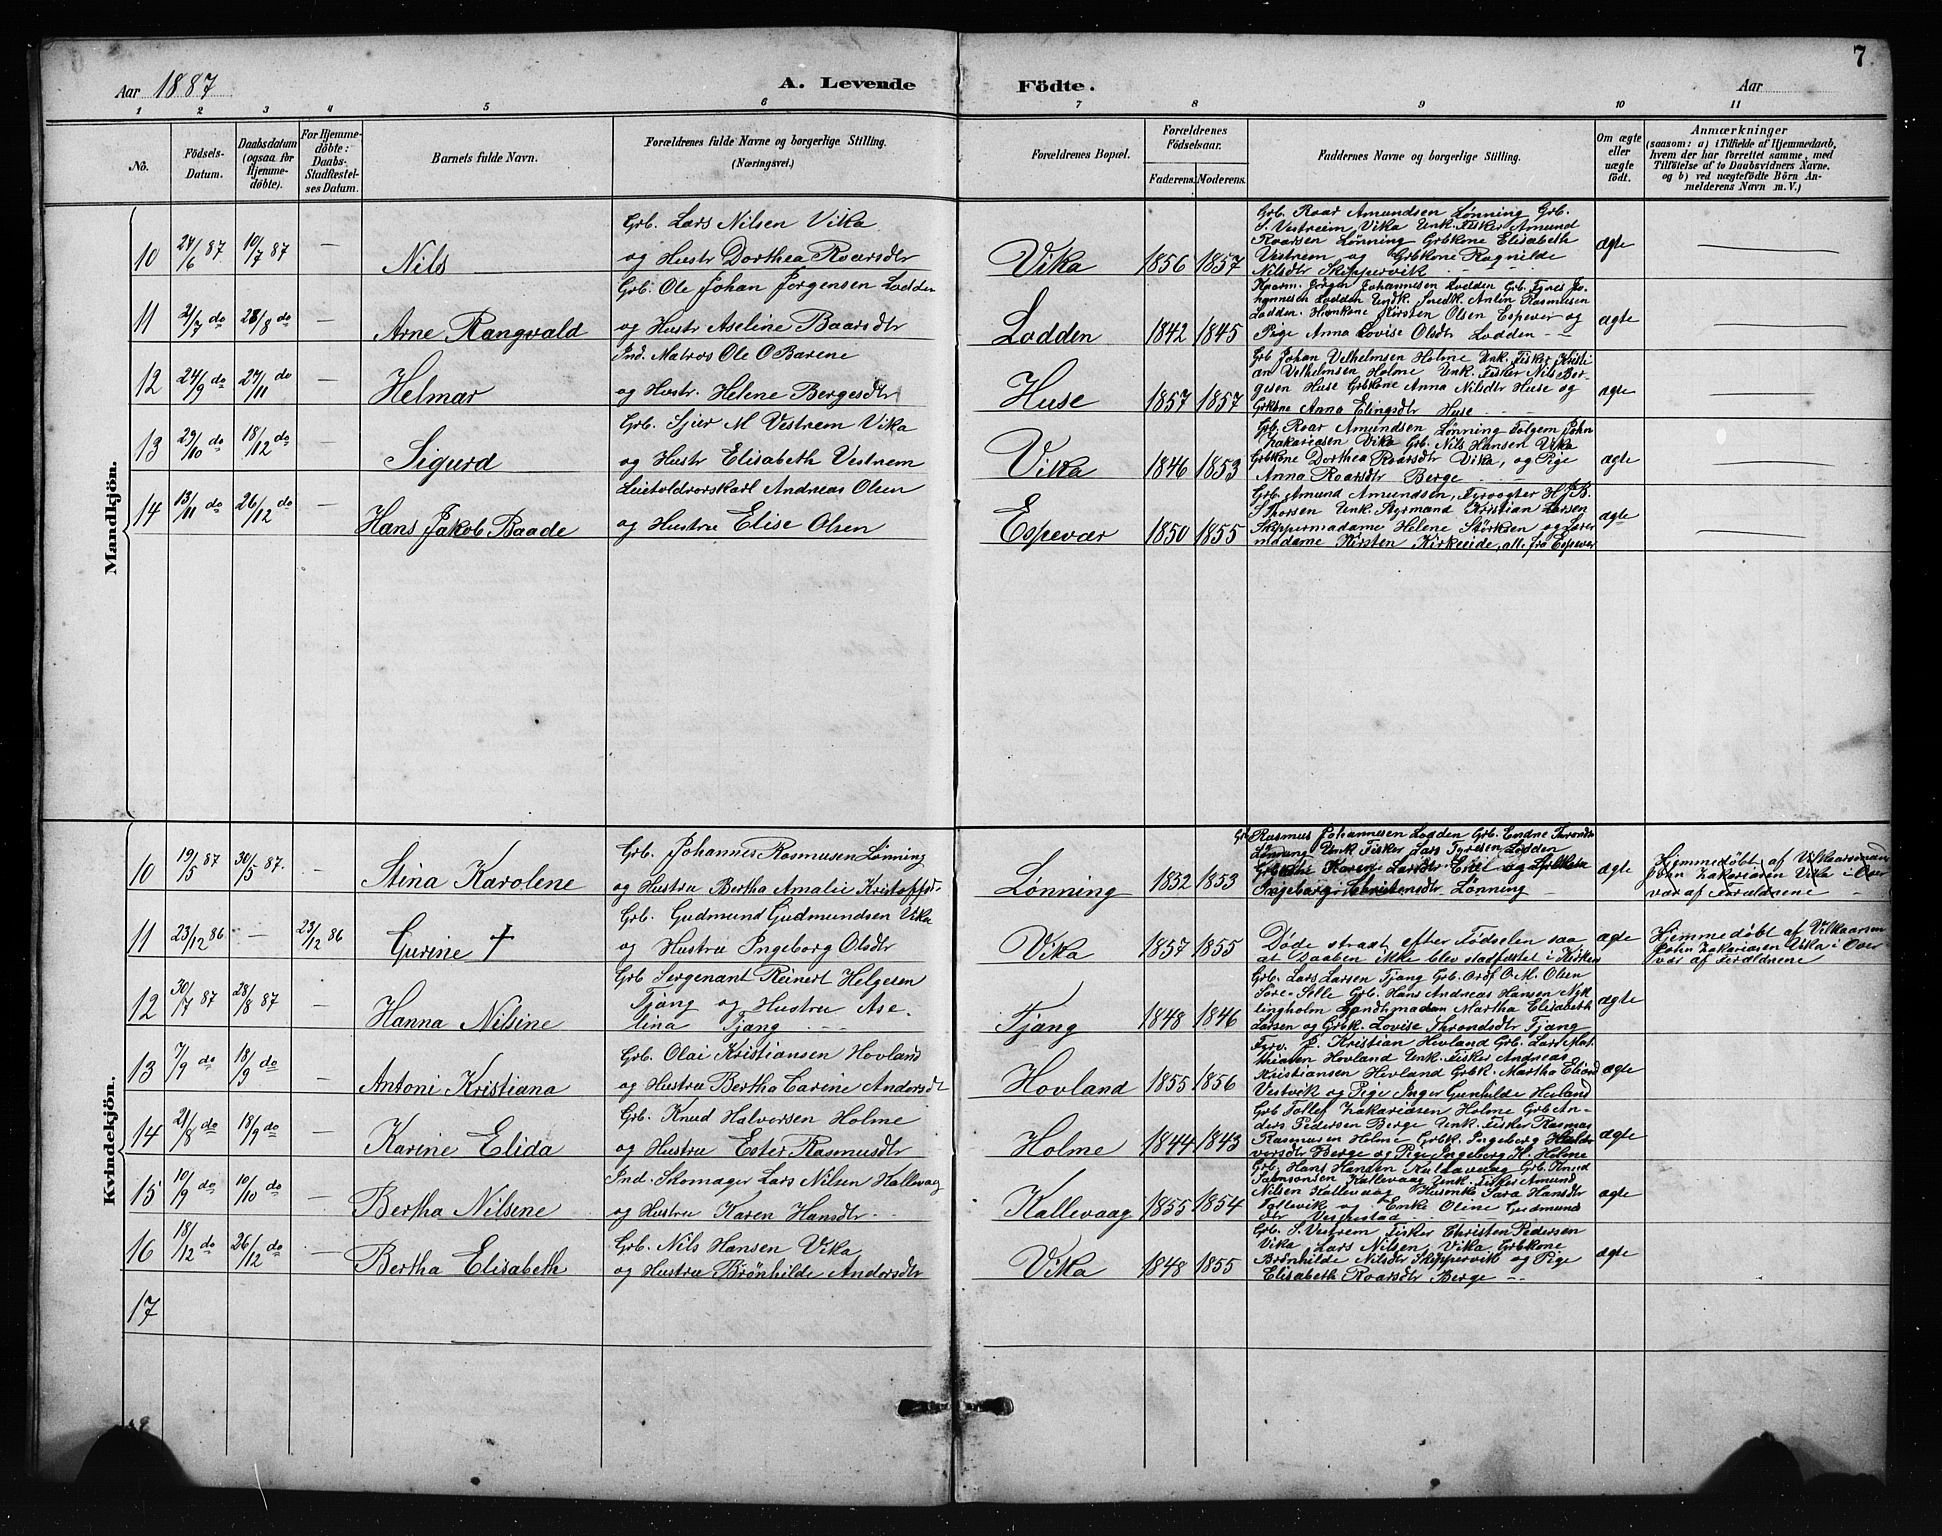 7.
Aar 1887
A. Levende Födte.
Aar
1 2 3 4 5 6 7 8 9 10 11
No.
Födsels-Datum.
Daabsdatum (ogsaa for Hjemme-döbte).
For Hjemme-döbte: Daabs-Stadfæstel-ses Datum.
Barnets fulde Navn.
Forældrenes fulde Navne og borgerlige Stilling.
(Næringsvei.)
Forældrenes Bopæl.
Forældrenes Födselsaar.
Faderens. Moderens.
Faddernes Navne og borgerlige Stilling.
Om ægte eller uægte födt.
Anmærkninger
(saasom: a) i Tilfælde af Hjemmedaab,
hvem der har forrettet samme, med
Tilföielse af to Daabsvidners Navne.
og b) ved uægtefödte Börn An-
melderens Navn m. V.)
Mandkjön.
10 24/6 87. 10/7 87 — Nils
Grb. Lars Nilsen Vika
og Hustr Dorthea Roarsdtr
Vika 1856 1857
Grb. Roar Amundsen Lønning Grb.
S. Vestreim, Vika Unk. Fisker Amund
Roarsen Lønning Grbkone Elisabeth
Vestrem og Grbkone Ragnilde
Nilsdtr Skippervik
ægte
11 21/7 do 28/8 do — Arne Rangvald
Grb. Ole Johan Jørgensen Lodden
og Hustr Aseline Baarsdtr
Lodden 1842 1845
Kaarm. Jørgen Johannesen Lodden Grb. Tyres Jo-
hannesen Lodden Undk. Snedk. Antin Rasmusen
Lodden. Hkone Kirsten Olsen Espevær og
Pige Anna Lovise Olsdtr Lodden
ægte
12 24/9 do 27/11 do — Helmar
Ind. Matros Ole O Barene
og Hustr. Helene Bergesdtr
Huse 1857 1857
Grb Johan Vilhelmsen Holme Unk. Fisker Kristi-
an Velhelmsen Holme Unk Fisker Nils Ber-
gesen Huse Grbkone Anna Nilsdtr Huse og
Grkone Anna Elingsdtr Huse
ægte
13 29/10 do 18/12 do — Sigurd
Grb. Sjur M Vestrem Vika
og Hustr Elisabeth Vestrem
Vika 1846 1853
Grb. Roar Amundsen Lønning Folgem John
Zakariasen Vika Grb. Nils Hansen Vika
Grbkone Dorthea Roarsdtr Vika, og Pige
Anna Roarsdtr Berge
ægte
14 13/11 do 26/12 do — Hans Jakob Baade
Andreas Olsen
og Hustru Elise Olsen
Espevær 1850 1855
Grb. Amund Amundsen, Fyrvogter H.J.B.
Thorsen Unk. Styrmand Kristian Larsen
Skippermadame Helene Størksen og Lærer
madame Kirsten Kirkeeide, all. fra Espevær
ægte
Kvindekjön.
10 19/5 87 30/5 87. — Stina Karolene
Grb. Johannes Rasmusen Lønning
og Hustru Bertha Amalie Kristoffsd.
Lønning 1852 1853
Grb Rasmus Johannesen Lodden Grb. Endne Thronds
Lønning Unk Fisker Lars Tyresen Lodden
Karen Larsdtr Eneel og
Ingeborg Lønning
ægte
Hjemmedøbt af Vilkaarsmand
John Zakariasen Vika i Over
vær af Forældrene
11 23/12 86 — 23/12 86 Gurine +
Grb. Gudmund Gudmundsen Vika
og Hustru Ingeborg Olsdtr
Vika 1857 1855
Døde strast efter Fødselen saa
at Daaben ikke blev stadfæstet i Kirken
ægte
Hjemmedøbt af Vilkaarsm
John Zakariasen Vika i Over
vær af Forældrene
12 30/7 87 28/8 87 — Hanna Nilsine
Grb Sergenant Reinert Helgesen
Tjøng og Hustru Ase-
lina Tjang
Tjang 1848 1846
Grb. Lars Larsen Tjang Grb. Ordf O. M. Olsen
Søre-Selle Grb. Hans Andreas Hansen Nyk
lingholm Landhmadam Martha Elisabeth
Larsen og Grbk. Lovise Throndsdtr Tjang
ægte
13 7/9 do 18/9 do — Antoni Kristiana
Grb. Olai Kristiansen Hovland
og Hustru Bertha Carine Andersdt
Hovland 1855 1856
Fyrv. P. Kristian Hovland Grb. Lars Mat-
thiasen Hovland Unk. Fisker Andreas
Kristiansen Hovland Grbk Martha
Vestvik og Pige Inger Gunhilde Hovland
ægte
14 21/8 do 18/9 do Karine Elida
Grb. Knud Halvorsen Holme
og Hustru Ester Rasmusdtr
Holme 1844 1843
Grb Tollef Zakariasen Holme Grb An-
ders Pedersen Berge Unk. Fisker Rasmus
Rasmusen Holme Grbk. Ingeborg Hal-
vorsdtr Berge og Pige Ingeborg K. Holme
ægte
15 10/9 do 10/10 do — Bertha Nilsine
Ind. Skomager Lars Nilsen Kallevaag
og Hustru Karen Hansdtr
Kallevaag 1855 1854
Grb. Hans Hansen Kallevaag Grb. Knud
Samsonsen Kallevaag Unk. Fisker Amund
Nilsen Kallevaag Husmk Sara Hansdtr
Tollevik og Enke Oline Gudmunds
dtr Vespestad
ægte
16 18/12 do 26/12 do — Bertha Elisabeth
Grb. Nils Hansen Vika
og Hustru Brønhilde Andersdtr
Vika 1848 1855
Grb. S. Vestrem Fisker Christen Pedersen
Vika Lars Nilsen, Vika Grbkone
Brønhilde Nilsdtr Skippervik og Pige
Elisabeth Roarsdtr Berge
ægte
17